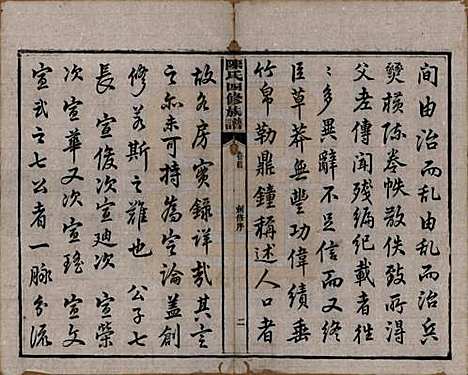 間由治而亂由亂而治兵
燹橫陈卷帙散佚致所得
父老傳聞殘編紀載者往
々多異辭不足信而又終
臣草莽無豐功偉績垂
竹帛勒鼎鐘稱述人口者
陳氏四修族譜
卷首
創修序
二
故各房實錄詳哉其言
之亦未可持為定論蓋創
修若斯之難也 公子七
長宣俊次宣廸次宣榮
次宣華又次宣瑤 宣文
宣武之七公者一脉分派